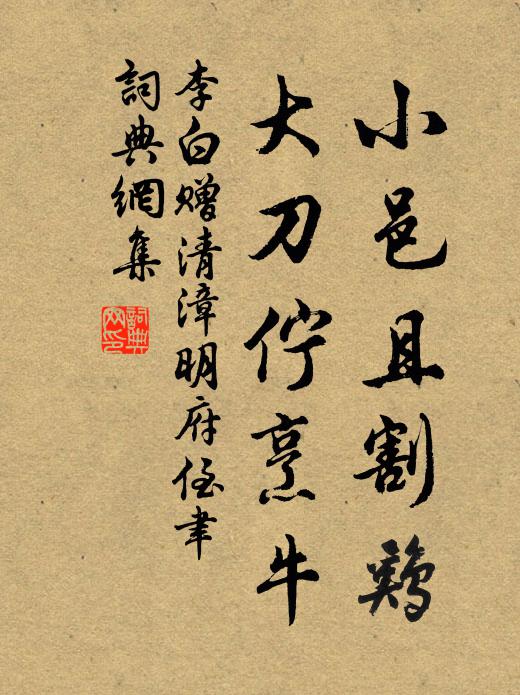 小邑且割鷄
大刀佇烹牛
李白赠清漳明府侄聿
詞典網集
詞典网印